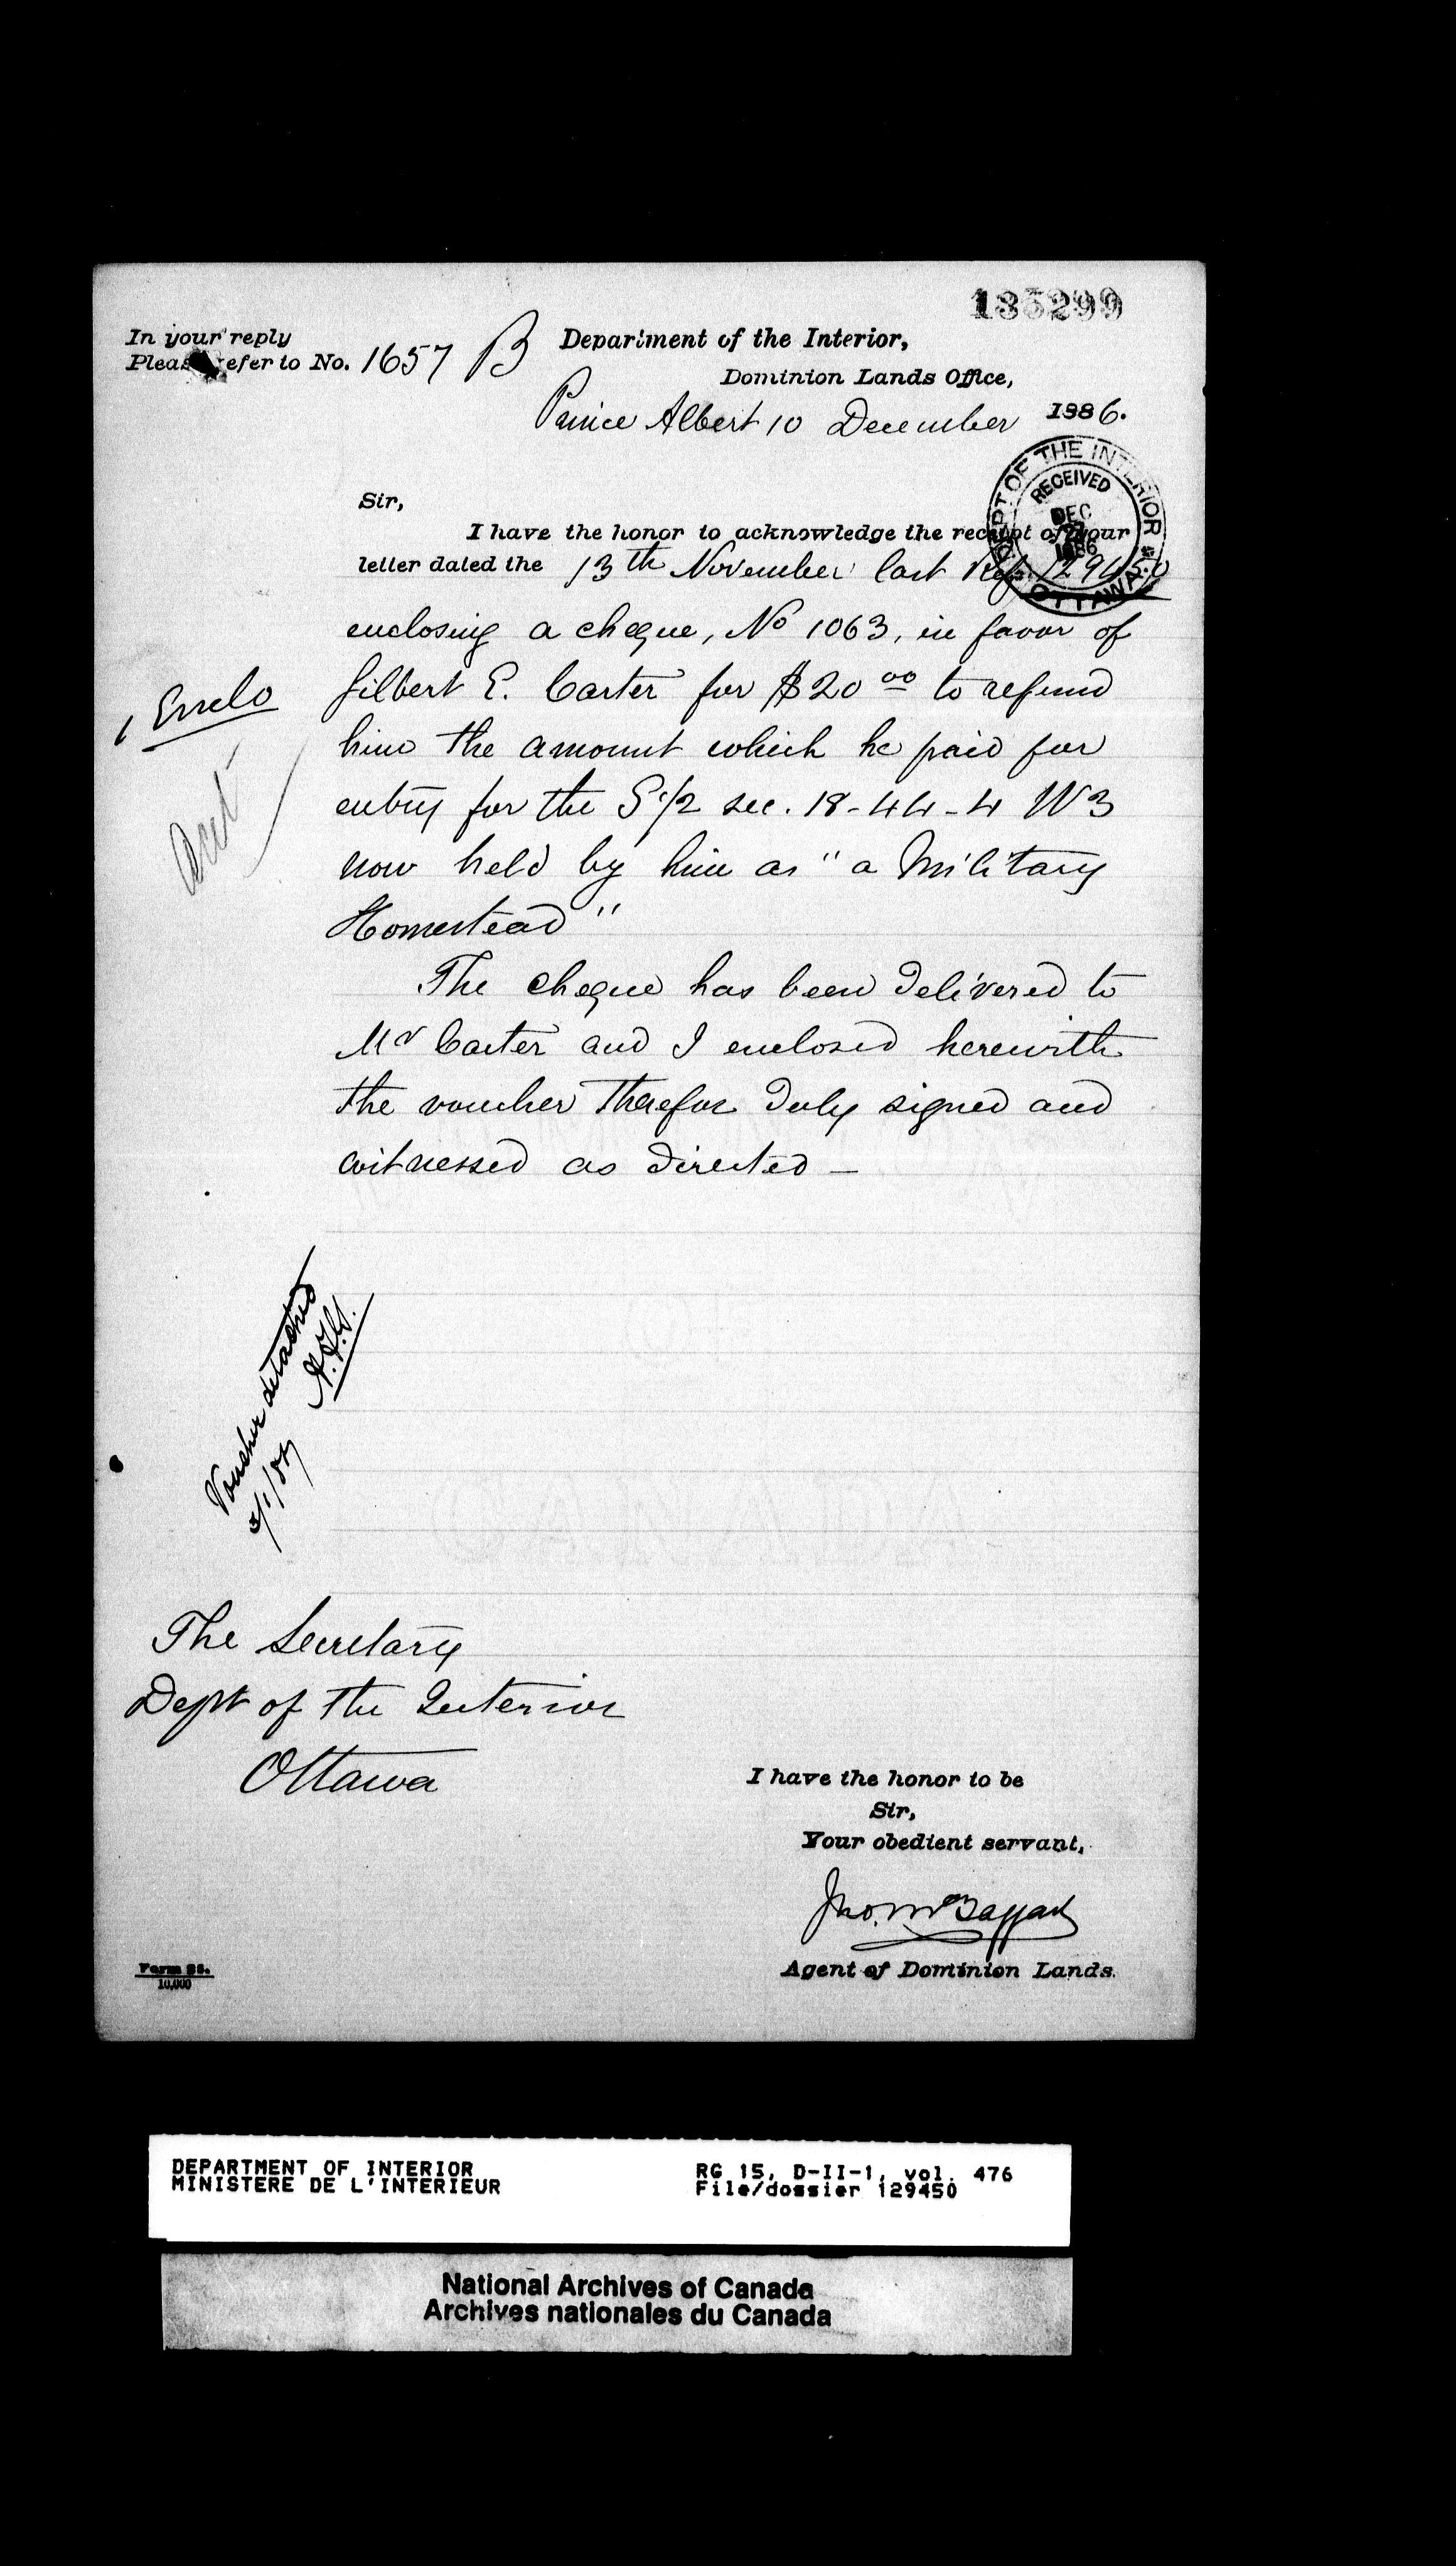 135299
In your reply
Please refer to No. 1657 B
Department of the Interior,
Dominion Lands Office,
Prince Albert 10 December 1886.
DEPT OF THE INTERIOR
RECEIVED
DEC
1886
OTTAWA
Sir,
I have the honor to acknowledge the receipt of your
letter dated the 13th November last Ref. 129450
enclosing a cheque, No 1063, in favor of
Gilbert E. Carter for $20 00 to refund
him the amount which he paid for
entry for the S 1/2 sec. 18-44-4 W3
now held by him as "a Military
Homestead"
1 Enclo
The cheque has been delivered to
Mr Carter and I enclosed herewith
the voucher therefor duly signed and
witnessed as directed –
Voucher detached
3/1/87
The Secretary
Dept of the Interior
Ottawa
I have the honor to be
Sir,
Your obedient servant,
Jno. McTaggart
Agent of Dominion Lands.
10,000
DEPARTMENT OF INTERIOR
MINISTERE DE L'INTERIEUR
RG 15, D-II-1, vol. 476
File/dossier 129450
National Archives of Canada
Archives nationales du Canada